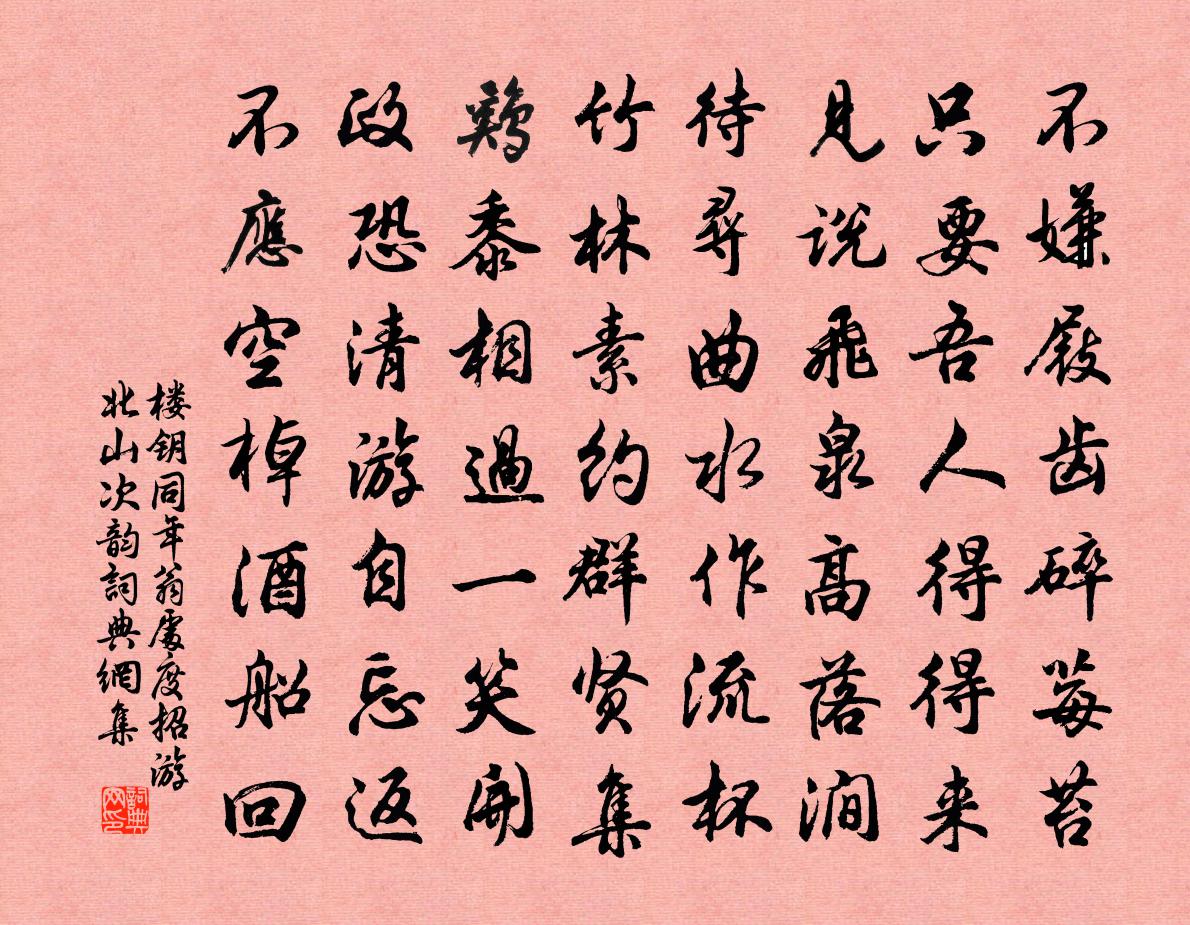 不嫌屐齿碎莓苔
只要吾人得得来
见说飛泉高落涧
待尋曲水作流杯
竹林素约群贤集
鷄黍相過一笑開
政恐清游自忘返
不應空棹酒船回
楼钥同年翁處度招游
北山次韵詞典網集
詞典
网印